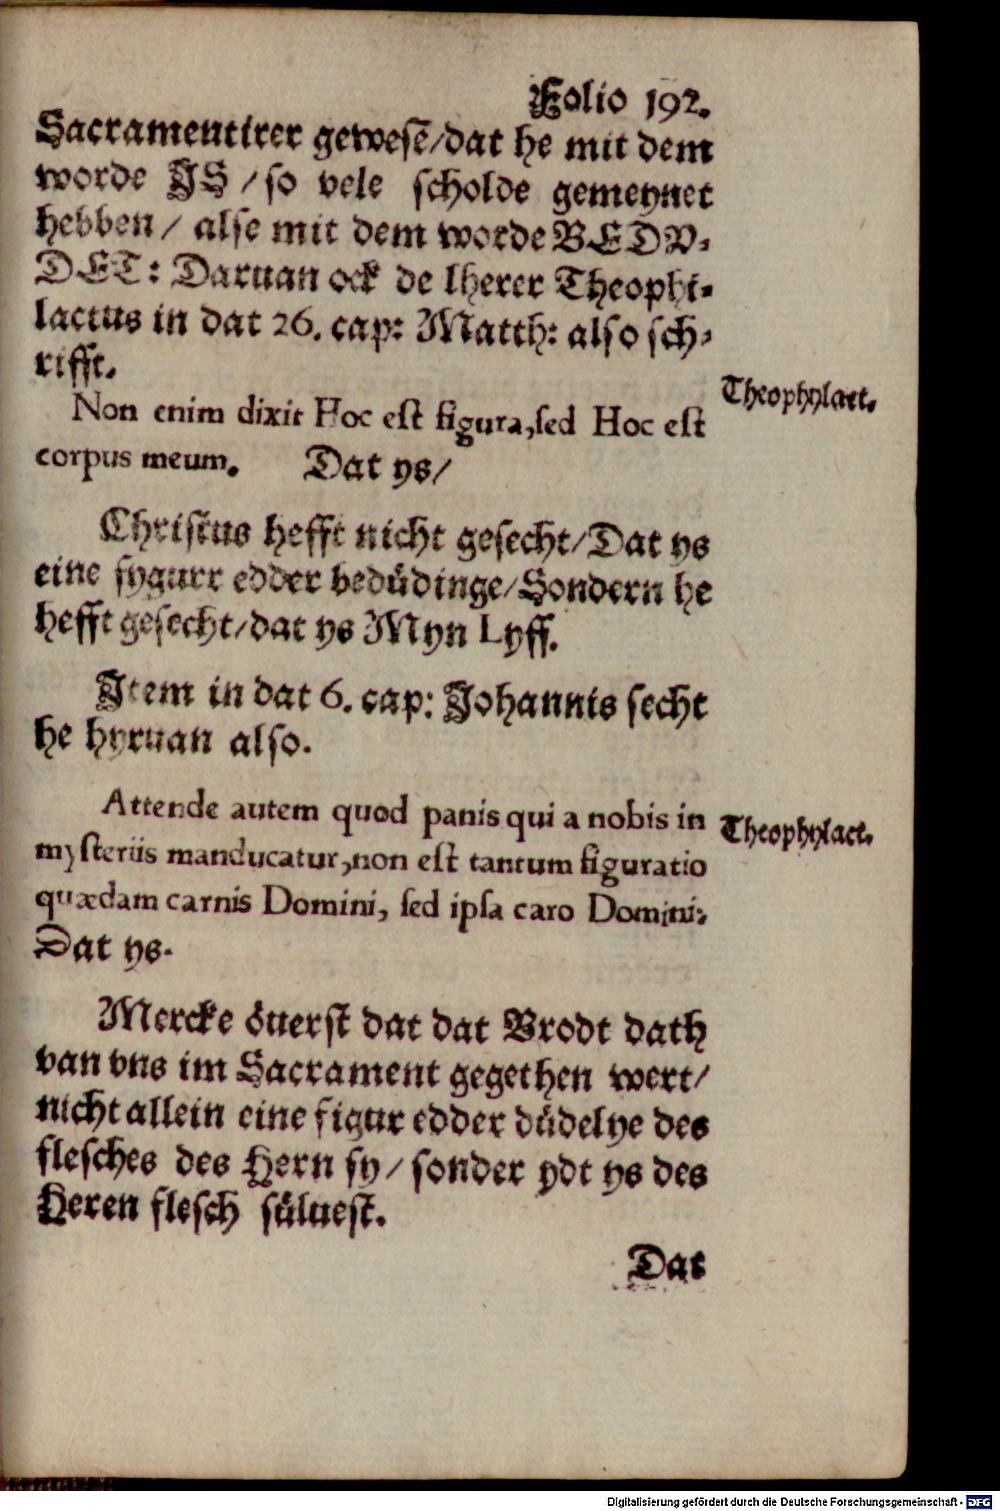 Folio 192.
Sacramentirer gewesē/dat he mit dem
worde JS / so vele scholde gemeynet
hebben / alse mit dem worde BEDV⸗
DET: Daruan ock de lherer Theophi⸗
lactus in dat 26. cap: Matth: also sch⸗
rifft.
Theophylact.
Non enim dixit Hoc est figura, sed Hoc est
corpus meum. Dat ys/
Christus hefft nicht gesecht/Dat ys
eine fygurr edder bedüdinge/Sondern he
hefft gesecht/dat ys Myn Lyff.
Jtem in dat 6. cap: Johannis secht
he hyruan also.
Attende autem quod panis qui a nobis in
Theophylact.
mysteriis manducatur, non est tantum figuratio
quædam carnis Domini, sed ipsa caro Domini:
Dat ys.
Mercke öuerst dat dat Brodt dath
van vns im Sacrament gegethen wert/
nicht allein eine figur edder düdelye des
flesches des Hern sy / sonder ydt ys des
Heren flesch süluest.
Dat
Digitalisierung gefördert durch die Deutsche Forschungsgemeinschaft - DFG